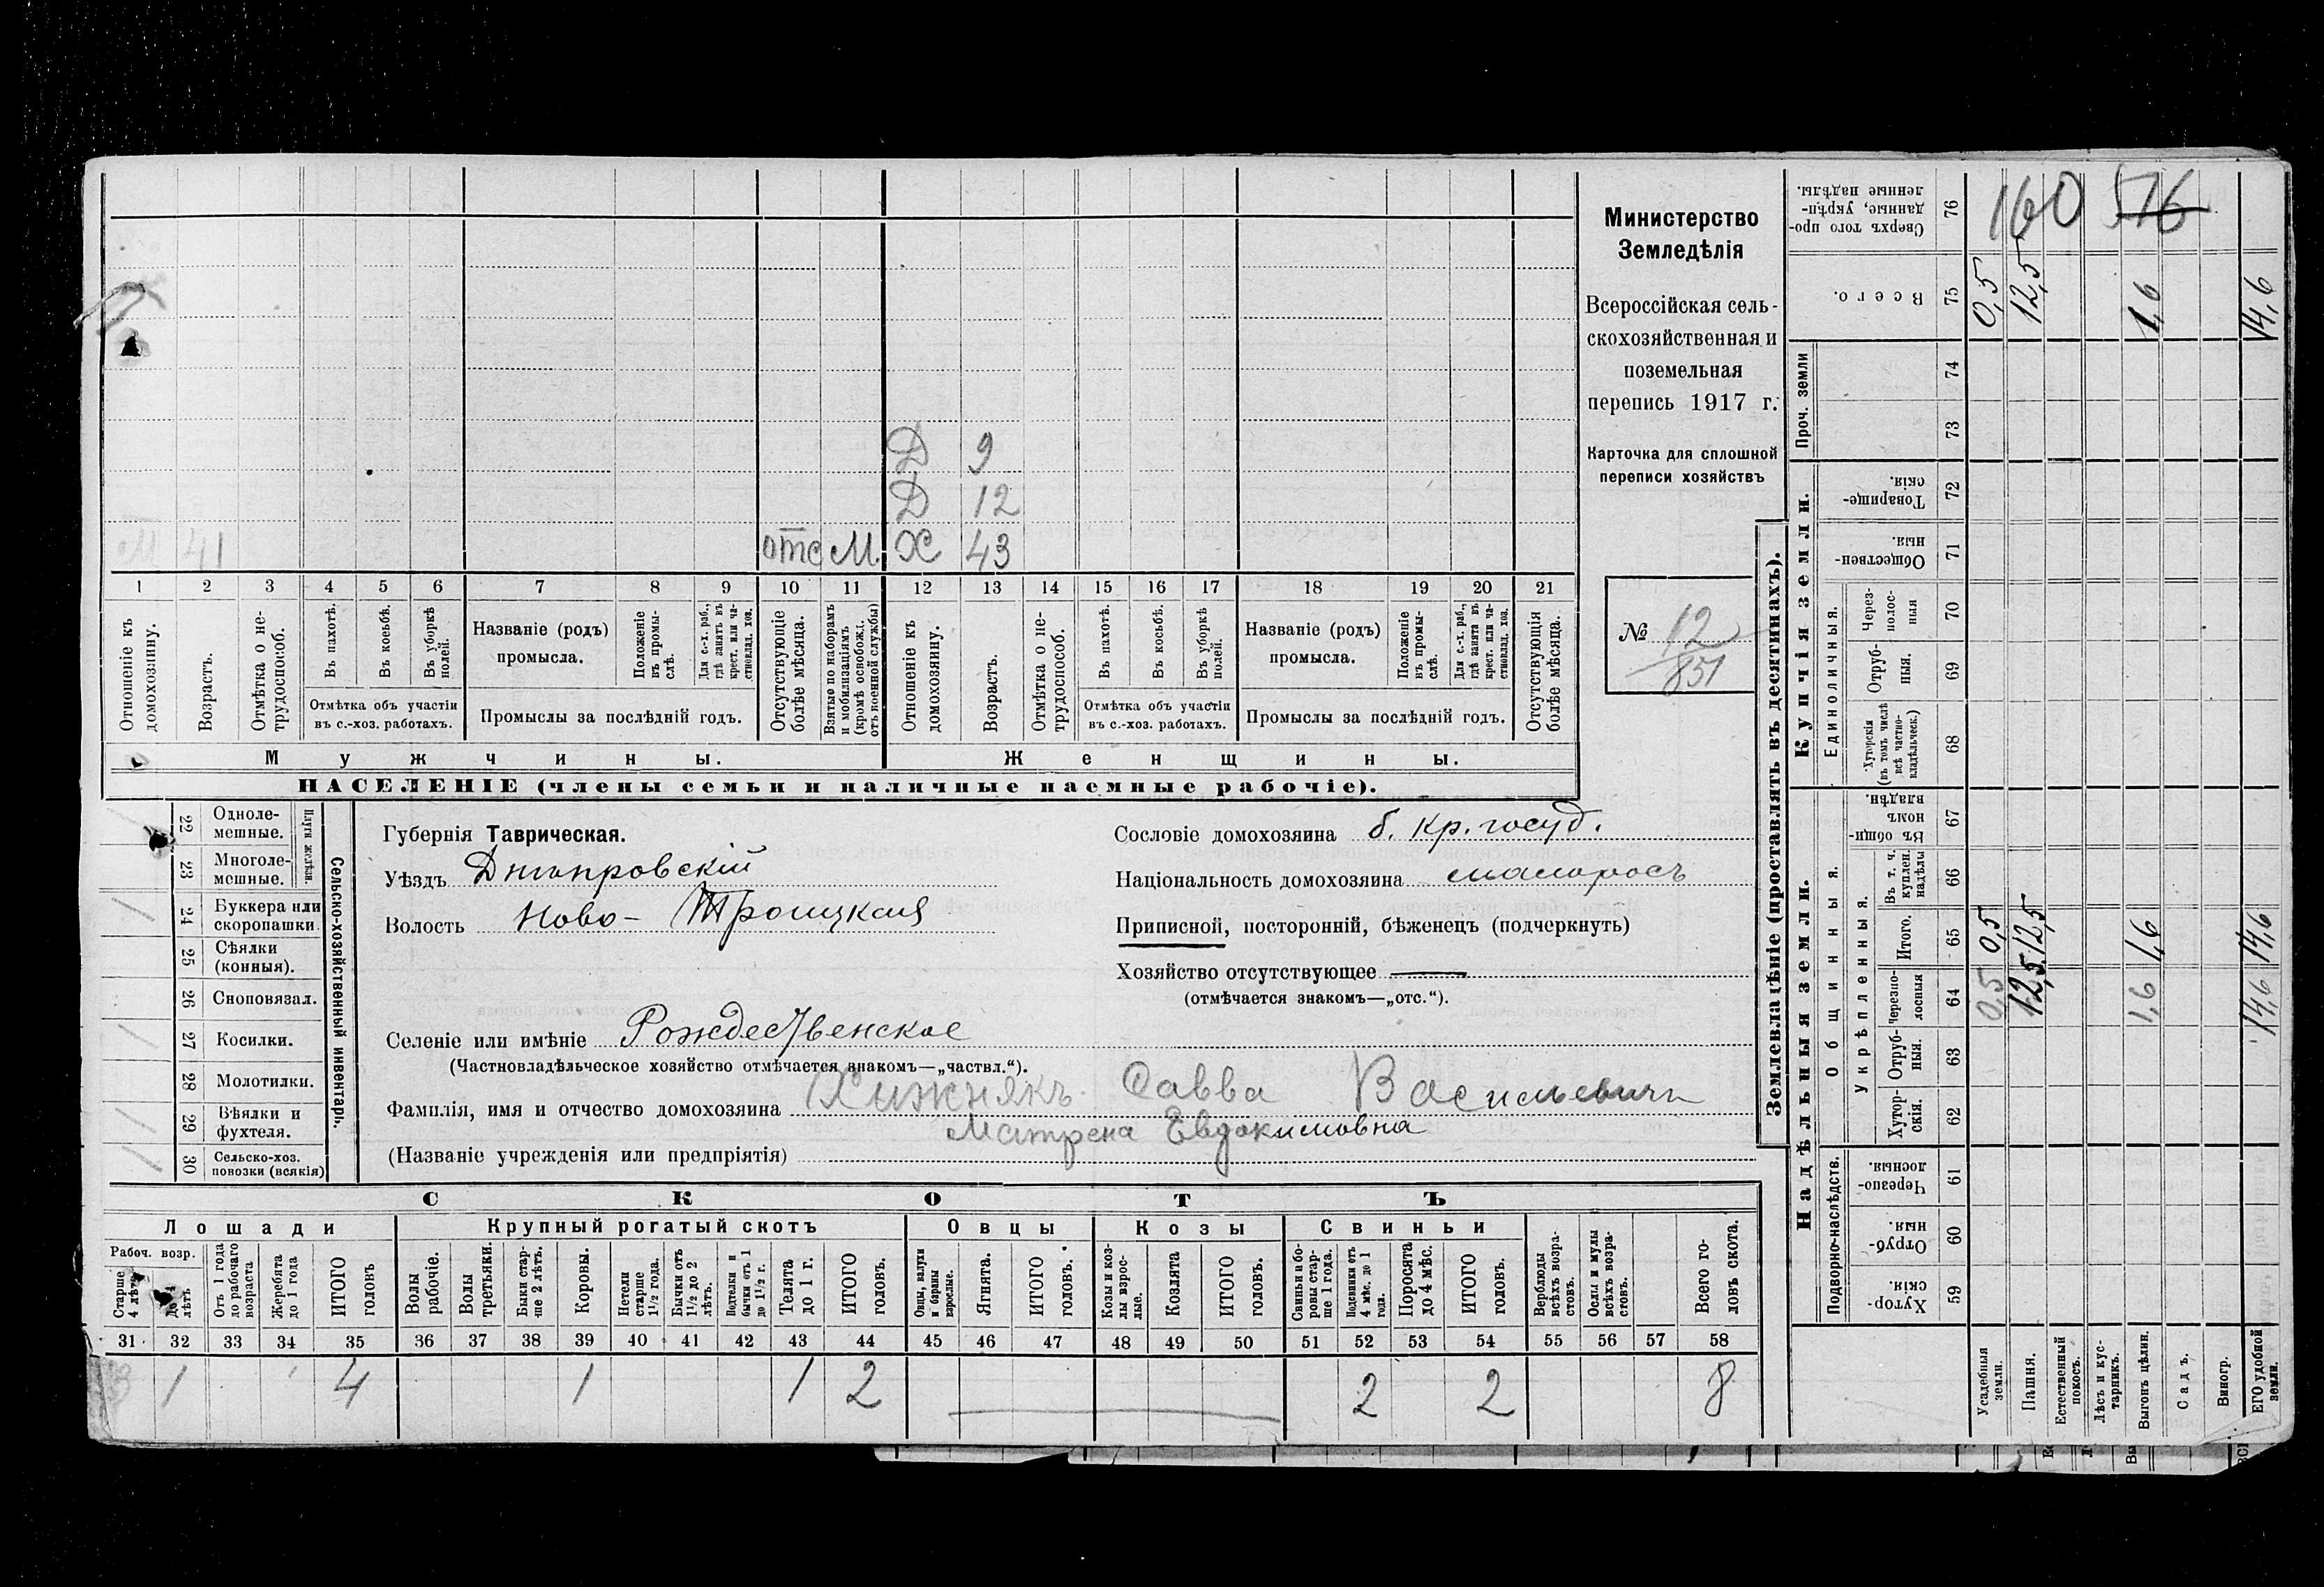 Министерство
Земледѣлія
Всероссійская сель-
скохозяйственная и
поземельная
перепись 1917 г.
Карточка для сплошной
переписи хозяйствъ
№ 12
851
Д 9
Д 12
М 41 отс М. Х 43
1 2 3 4 5 6 7 8 9 10 11 12 13 14 15 16 17 18 19 20 21
Отношеніе къ домохозяину.
Возрастъ.
Отмѣтка о не-трудоспособ.
Въ пахотѣ.
Въ косьбѣ.
Въ уборкѣ полей.
Отмѣтка объ участіи въ с.-хоз. работахъ.
Названіе (родъ) промысла.
Положеніе въ промы-слѣ.
Для с.-х. раб., гдѣ занятъ въ крест. или ча-стновлад. хоз.
Промыслы за послѣдній годъ.
Отсутствующіе болѣе мѣсяца.
Взятые по наборамъ и мобилизаціямъ (кромѣ освобожд. отъ военной службы)
Отношеніе къ домохозяину.
Возрастъ.
Отмѣтка о не-трудоспособ.
Въ пахотѣ.
Въ косьбѣ.
Въ уборкѣ полей.
Отмѣтка объ участіи въ с.-хоз. работахъ.
Названіе (родъ) промысла.
Положеніе въ промы-слѣ.
Для с.-х. раб., гдѣ занята въ крест. или ча-стновлад. хоз.
Промыслы за послѣдній годъ.
Отсутствующія болѣе мѣсяца.
Мужчины. Женщины.
НАСЕЛЕНІЕ (члены семьи и наличные наемные рабочіе).
Сельско-хозяйственный инвентарь.
Плуги желѣзн.
22 Одноле-мешные.
23 Многоле-мешные.
24 Буккера или скоропашки. 1
25 Сѣялки (конныя).
26 Сноповязал.
27 Косилки. 1
28 Молотилки.
29 Вѣялки и фухтеля.
30 Сельско-хоз. повозки (всякія)
Губернія Таврическая.
Уѣздъ Днѣпровскій
Волость Ново-Троицкая
Сословіе домохозяина б. кр. госуд.
Національность домохозяина малоросъ
Приписной, посторонній, бѣженецъ (подчеркнуть)
Хозяйство отсутствующее —
(отмѣчается знакомъ—„отс.“).
Селеніе или имѣніе Рождественское
(Частновладѣльческое хозяйство отмѣчается знакомъ—„частвл.“).
Фамилія, имя и отчество домохозяина Хижнякъ Савва Васильевичъ
Матрена Евдокимовна
(Названіе учрежденія или предпріятія)
СКОТЪ
Лошади Крупный рогатый скотъ Овцы Козы Свиньи
Рабоч. возр.
Старше 4 лѣтъ
До 4 лѣтъ
Отъ 1 года до рабочаго возраста
Жеребята до 1 года
ИТОГО головъ
Волы рабочіе.
Волы третьяки.
Быки стар-ше 2 лѣтъ.
Коровы.
Нетели старше 1½ года.
Бычки отъ 1½ до 2 лѣтъ.
Подтелки и бычки отъ 1 до 1½ г.
Телята до 1 г.
ИТОГО головъ.
Овцы, валухи и бараны взрослые.
Ягнята.
ИТОГО головъ.
Козы и коз-лы взрос-лые.
Козлята
ИТОГО головъ.
Свиньи и бо-ровы стар-ше 1 года.
Подсвинки отъ 4 мѣс. до 1 года.
Поросята до 4 мѣс.
ИТОГО головъ.
Верблюды всѣхъ возра-стовъ.
Ослы и мулы всѣхъ возра-стовъ.
Всего го-ловъ скота.
31 32 33 34 35 36 37 38 39 40 41 42 43 44 45 46 47 48 49 50 51 52 53 54 55 56 57 58
3 1 4 1 1 2 2 2 8
Землевладѣніе (проставлять въ десятинахъ).
Надѣльныя земли. Купчія земли. Проч. земли
Подворно-наслѣдств. Общинныя. Единоличныя.
Укрѣпленныя.
Хутор-скія. 59
Отруб-ныя. 60
Черезпо-лосныя. 61
Хутор-скія. 62
Отруб-ныя. 63
Черезпо-лосныя 64
Итого. 65
Въ т. ч. куплен. надѣлы 66
Въ общин-номъ владѣн. 67
Хуторскія (въ томъ числѣ всѣ частно-владѣльческ.) 68
Отруб-ныя. 69
Через-полос-ныя 70
Обществен-ныя. 71
Товарище-скія. 72
73
74
Всего. 75
Сверхъ того про-данные, укрѣп-ленные надѣлы. 76
160 516
Усадебныя земли. 0,5 0,5 0,5
Пашня. 12,5 12,5 12,5
Естественный покосъ.
Лѣсъ и кус-тарникъ.
Выгонъ цѣлин. 1,6 1,6 1,6
Садъ.
Виногр.
ЕГО удобной земли. 14,6 14,6 14,6